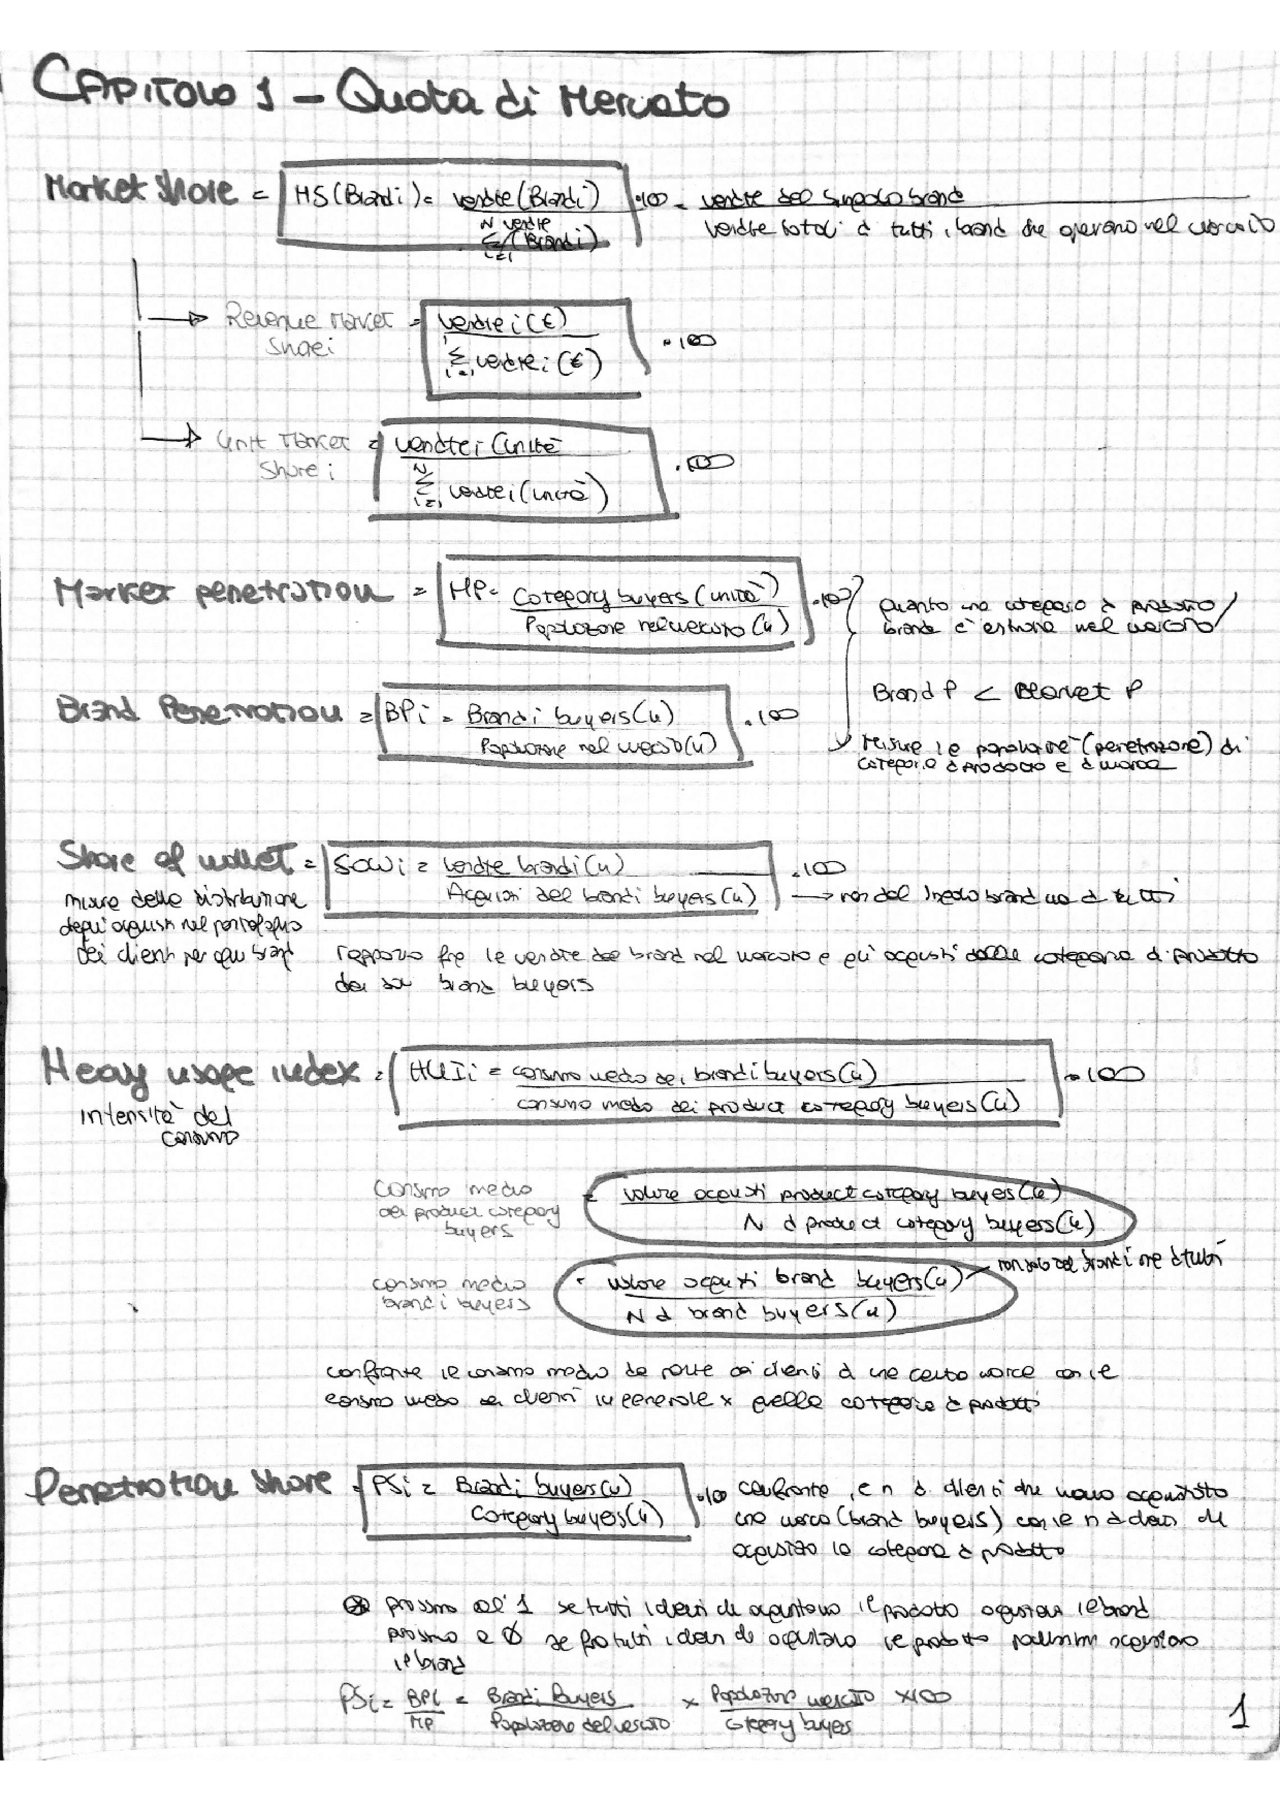 CAPITOLO 1 – Quota di Mercato
Market share = MS (Brand i) = vendite (Brand i) / N vendite Σ i=1 (Brand i) · 100 = vendite del singolo brand / vendite totali di tutti i brand che operano nel mercato
→ Revenue Market Share i = vendite i (€) / Σ vendite i (€) · 100
→ Unit Market Share i = vendite i (unità / N Σ i=1 vendite i (unità) · 100
Market penetration = MP = Category buyers (unità) / Popolazione nel mercato (u) · 100
quanto una categoria di prodotto / brand è estesa nel mercato
Brand P < Market P
Brand Penetration = BPi = Brand i buyers (u) / Popolazione nel mercato (u) · 100
misura la popolarità (penetrazione) di categoria di prodotto e di marca
Share of wallet = SOWi = vendite brand i (u) / Acquisti dei brand i buyers (u) · 100
→ non del singolo brand ma di tutti
misura della distribuzione
degli acquisti nel portafoglio
dei clienti per ogni brand
rapporto fra le vendite del brand nel mercato e gli acquisti della categoria di prodotto
dei suoi brand buyers
Heavy usage index = HUIi = consumo medio dei brand i buyers (u) / consumo medio dei product category buyers (u) · 100
intensità del
consumo
consumo medio
dei product category
buyers
= valore acquisti product category buyers (u) / N di product category buyers (u)
consumo medio
brand i buyers
= valore acquisti brand buyers (u) / N di brand buyers (u)
non solo del brand i ma di tutti
confronta il consumo medio da parte dei clienti di una certa marca con il
consumo medio dei clienti in generale x quella categoria di prodotti
Penetration share = PSi = Brand i buyers (u) / Category buyers (u) · 100
confronta il n di clienti che hanno acquistato
una marca (brand buyers) con il n di clienti che
acquistano la categoria di prodotto
prossimo all' 1 se tutti i clienti che acquistano il prodotto acquistano il brand
prossimo a 0 se fra tutti i clienti che acquistano il prodotto pochissimi acquistano
il brand
PSi = BPi / MP = Brand i Buyers / Popolazione del mercato × Popolazione mercato / category buyers × 100
1